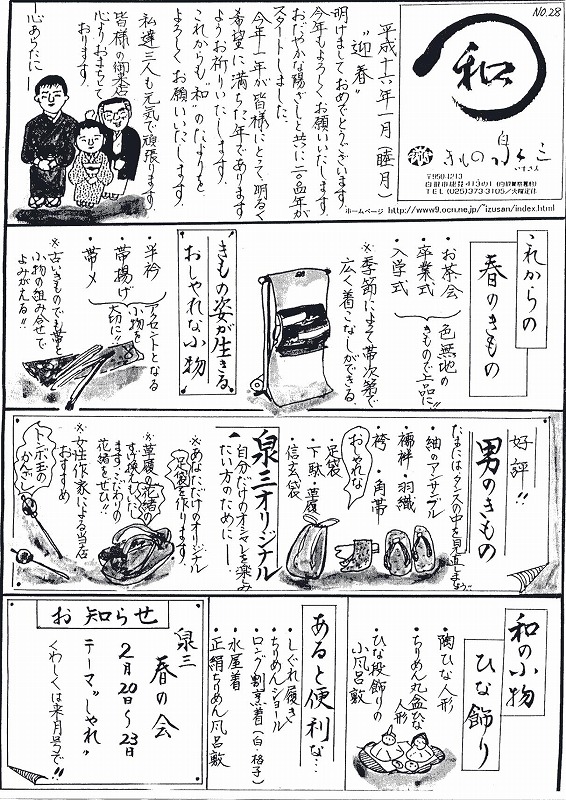 No.28
和
きもの 泉三
いずさん
〒950-1213
TEL (025)373-3105/火曜定休
ホームページ http://www9.ocn.ne.jp/~izusan/index.html
平成十六年一月(睦月)
"迎春"
明けましておめでとうございます。
今年もよろしくお願いいたします。
おだやかな陽ざしと共に二〇〇四年が
スタートしました。
今年一年が皆様にとって、明るく
希望に満ちた年であります
ようお祈りいたします。
これからも"和"のたよりを
よろしくお願いいたします。
私達三人も元気で頑張ります
皆様の御来店
心よりおまちして
おります。
―心あらたに―
これからの
春のきもの
・お茶会
・卒業式
・入学式
色無地の
きもので上品に!!
※季節により帯次第で
広く着こなしができる。
きもの姿が生きる
おしゃれな小物
・半衿
・帯揚げ
・帯〆
アクセントとなる
小物を
大切に!!
※古いきものでも帯と
小物の組み合せで
よみがえる!!
好評!!
男のきもの
たまには、タンスの中を見直しましょう
・紬のアンサンブル
・襦袢・羽織
・袴・角帯
おしゃれな
・足袋
・下駄・草履
・信玄袋
泉三オリジナル
自分だけのオシャレを楽しみ
たい方のために―
※あなただけのオリジナル
足袋を作ります
※草履の花緒の
すげ換えもした
ます。こだわりの
花緒をぜひ!!
※女性作家による当店
おすすめ
トンボ玉の
かんざし
和の小物
ひな飾り
・陶ひな人形
・ちりめん丸盆ひな
人形
・ひな段飾りの
小風呂敷
あると便利な…
・しぐれ履き
・ちりめんショール
・ロング割烹着(白・格子)
・水屋着
・正絹ちりめん風呂敷
お知らせ
泉三
春の会
2月20日〜23日
テーマ"しゃれ"
くわしくは来月号で!!